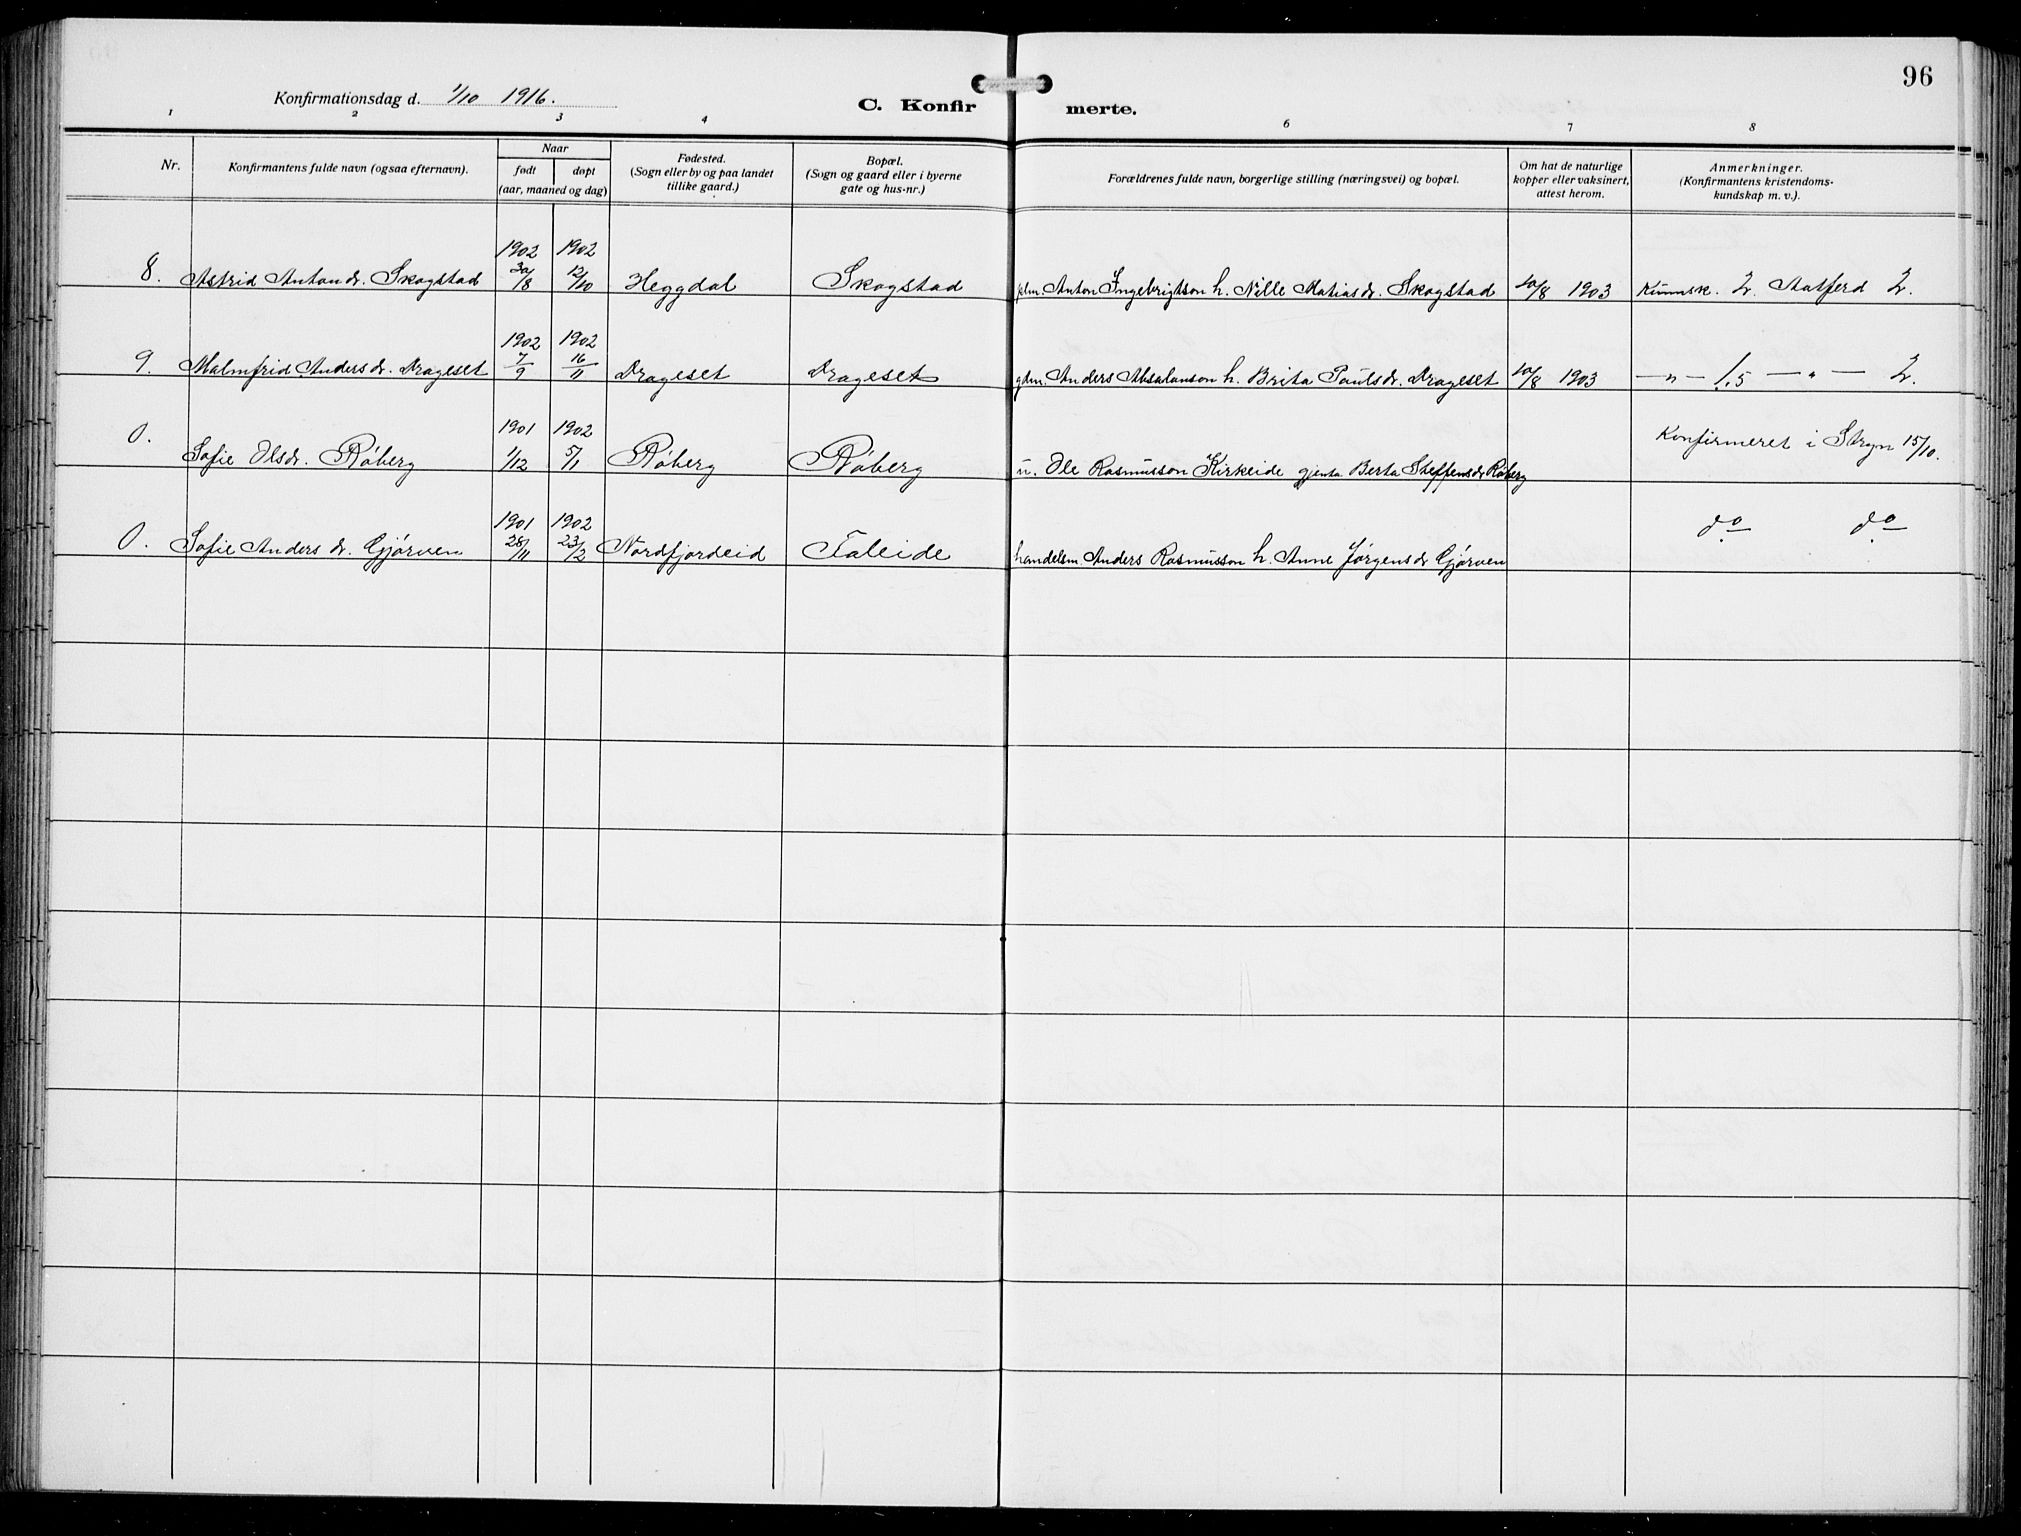 96
Konfirmationsdag d. 1/10 1916.
C. Konfir merte.
1 2 3 4 6 7 8
Nr.
Konfirmantens fulde navn (ogsaa efternavn).
Naar
født døpt
(aar, maaned og dag)
Fødested.
(Sogn eller by og paa landet
tillike gaard.)
Bopæl.
(Sogn og gaard eller i byerne
gate og hus-nr.)
Forældrenes fulde navn, borgerlige stilling (næringsvei) og bopæl.
Om hat de naturlige
kopper eller vaksinert,
attest herom.
Anmerkninger.
(Konfirmantens kristendoms-
kundskap m. v.).
1902 1902
8. Astrid Antondr. Skogstad 30/8 12/10 Heggdal Skogstad plm. Anton Ingebrigtson h. Nille Matiasdr. Skogstad 20/8 1903 Kunnsk. 2. Atatferd 2.
1902 1902
9. Malmfrid Andersdr. Drageset 7/9 16/11 Drageset Drageset gdm. Anders Absalonson h. Brita Paulsdr. Drageset 20/8 1903 — " — 1,5 — " — 2.
0. 1901 1902 Konfirmeret i Stryn 15/10.
Sofie Olsdr. Røberg 1/12 5/1 Røberg Røberg u. Ole Rasmusson Kirkeide gjenta Berta Steffensdr Røberg
1901 1902 do do
0. Sofie Andersdr. Gjørven 28/11 23/2 Nordfjordeid Faleide handelsm. Anders Rasmusson h. Anne Jørgensdr Gjørven